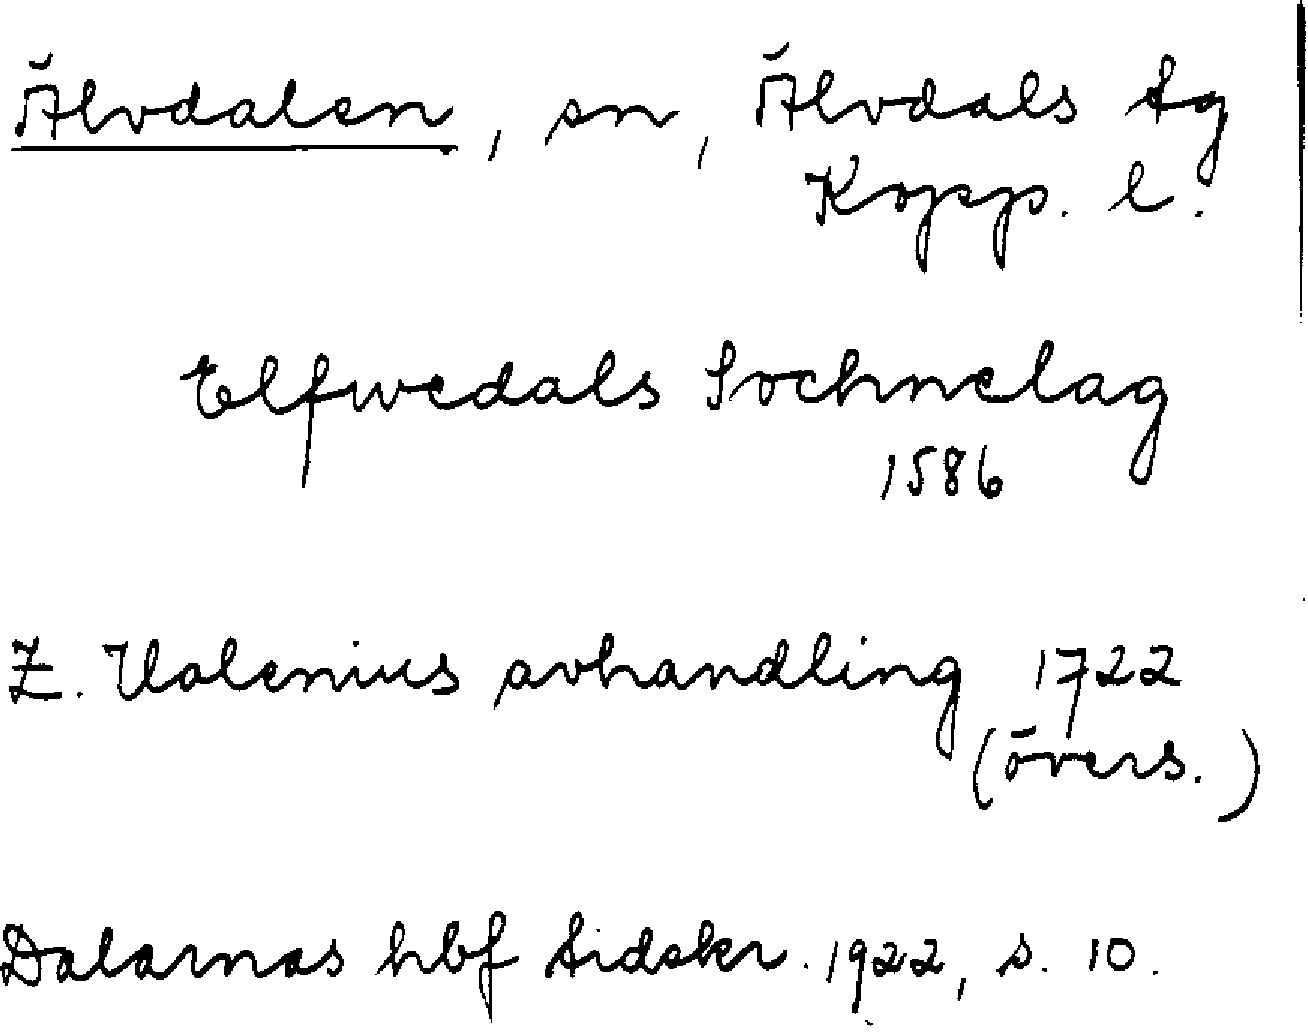 Älvdalen, sn, Älvdals tg
Kopp. l.
Elfwedals Sochnelag
1586
Z. Holenius avhandling 1722
(övers.)
Dalarnas hbf tidskr. 1922, s. 10.